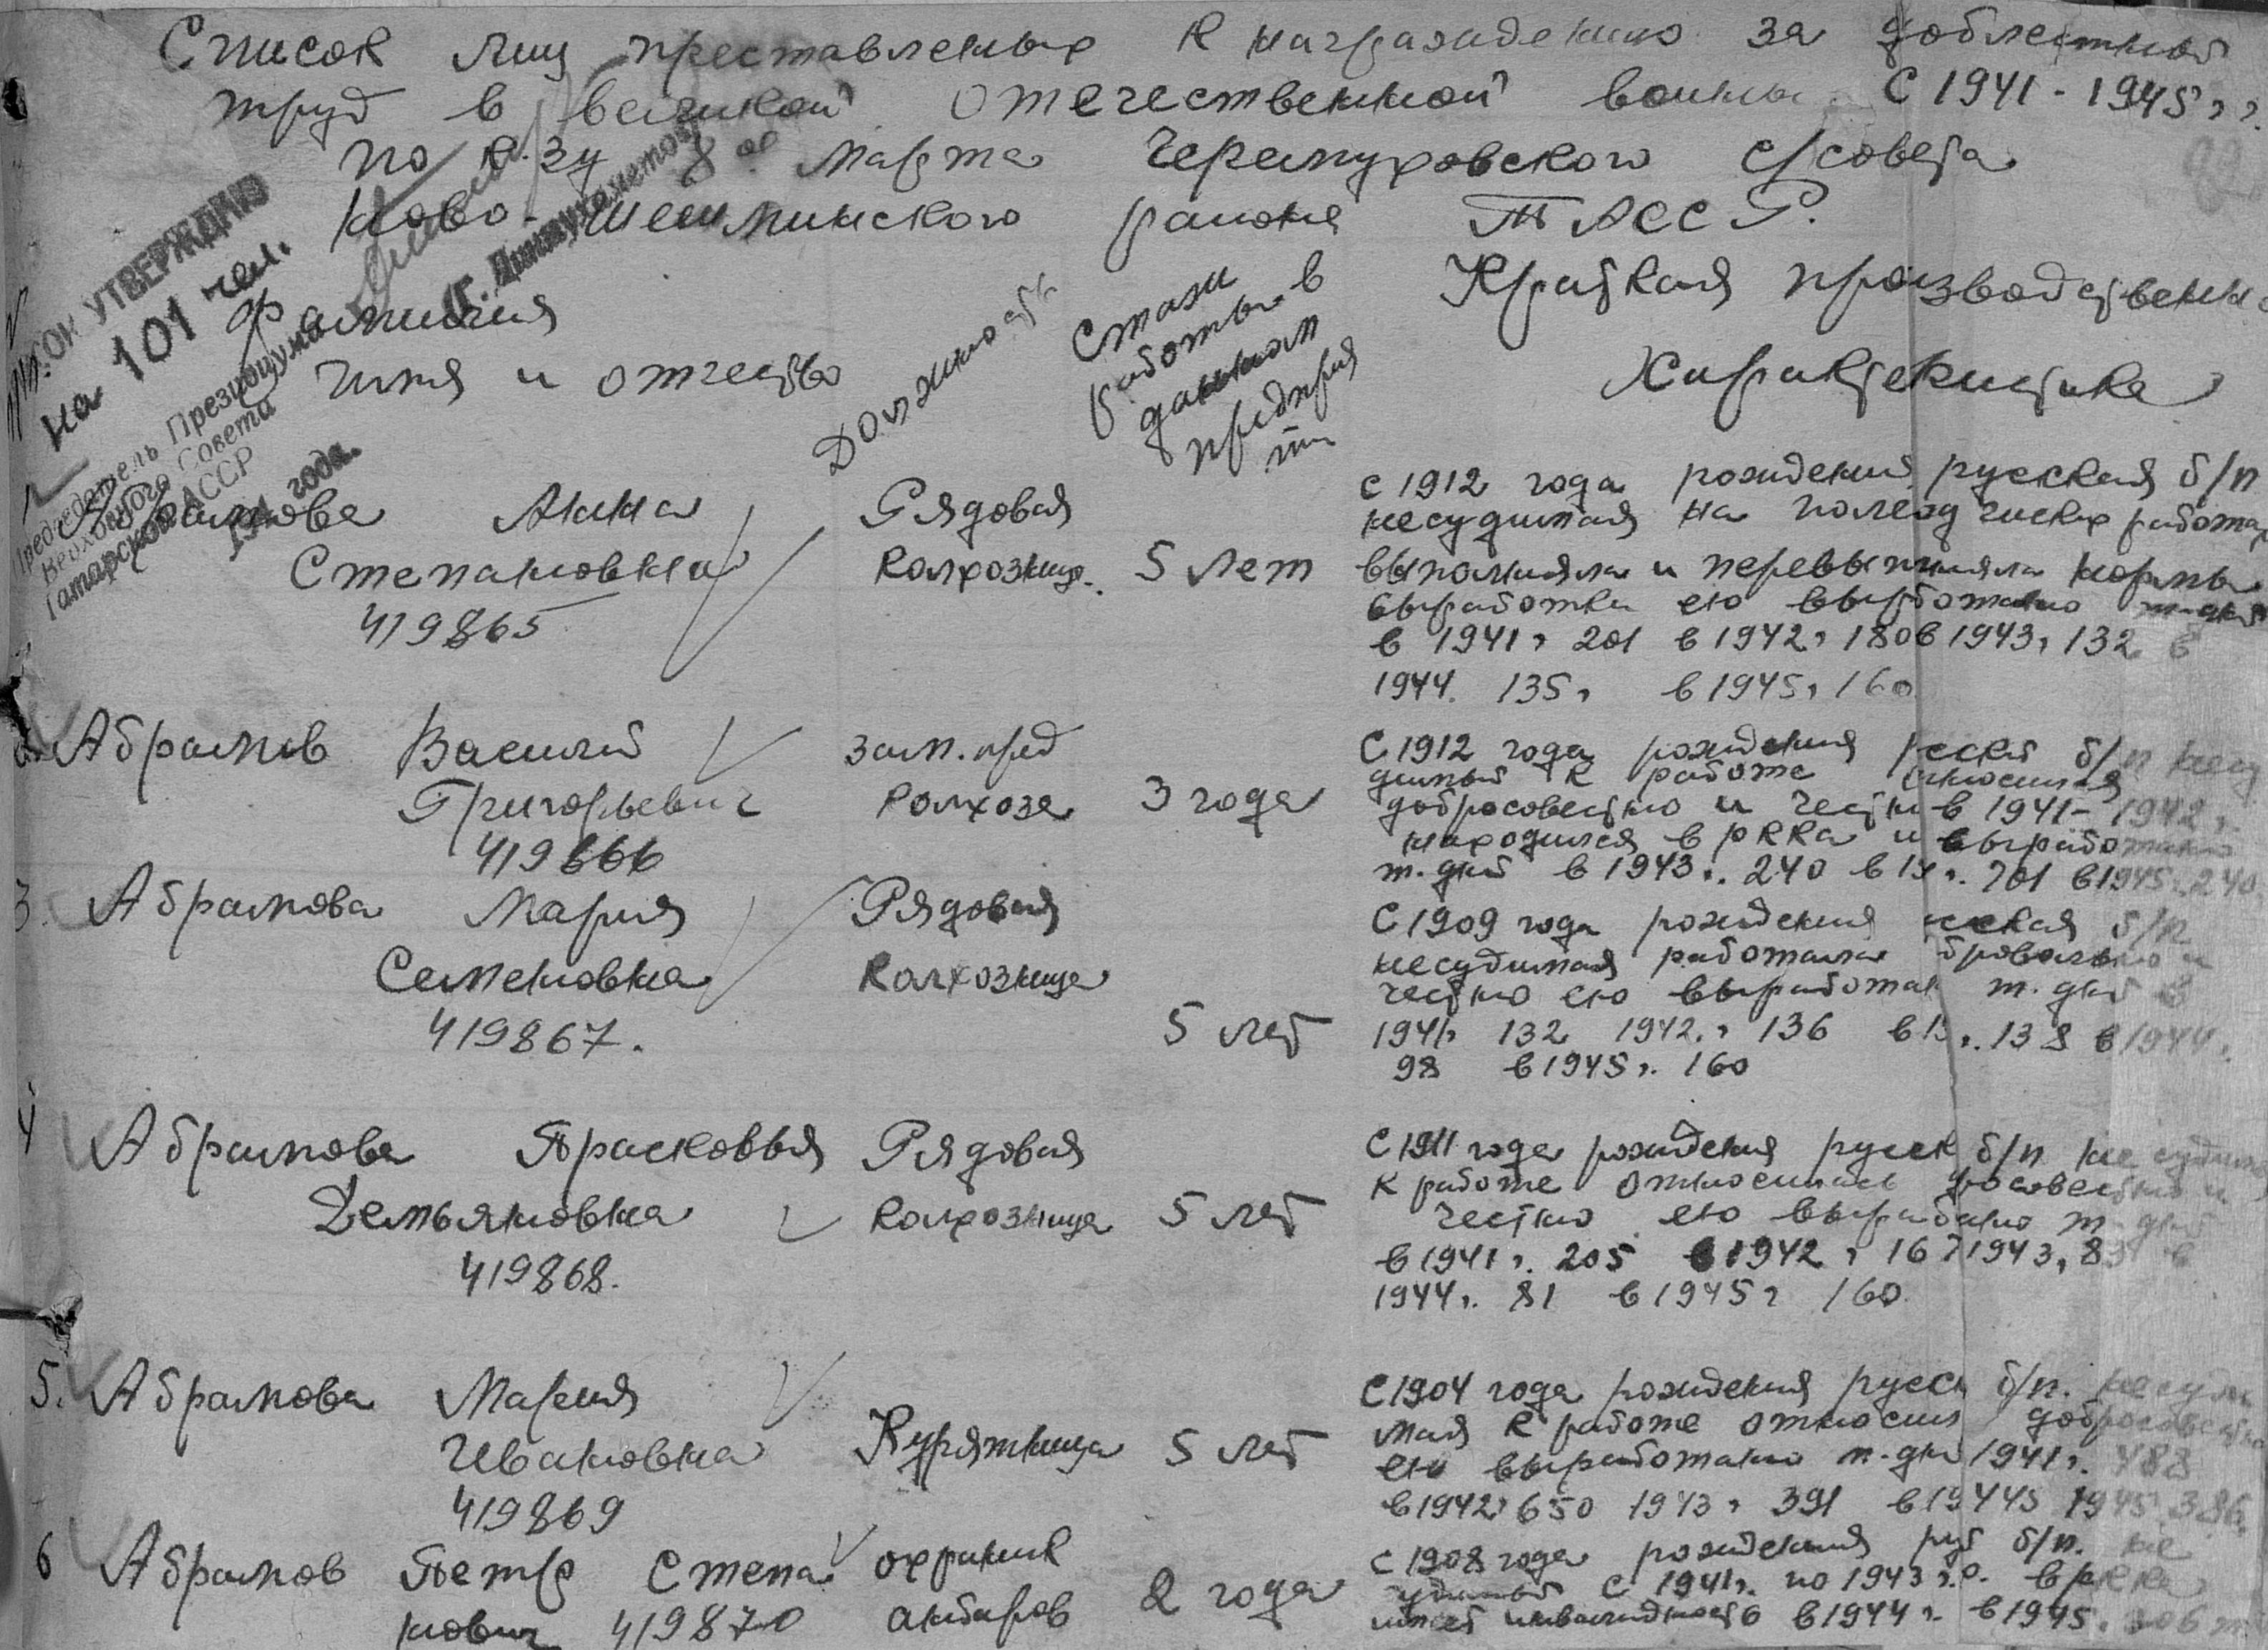 Список лиц преставленных к награждению за доблестный
труд в великой отечественной войны с 1941-1945 г.г.
по к-зу 8ое марта Черемуховского с/совета
Ново-Шешминского района ТАССР.
СПИСОК УТВЕРЖДАЮ
на 101 чел.
Председатель Президиума
Верховного Совета
Татарской АССР
(Г. Динмухаметов)
194 года.
Фамилия
имя и отчество
Должность
Стаж
работы в
данном
предприя
тии
Краткая производственн
Характеристика
1 Абрамова Анна
Степановна
419865
Рядовая
колхозница.
5 лет
с 1912 года рождения русская б/п
несудимая на полевод работах
выполняла и перевыполняла нормы
выработки ею выработано
в 1941г 201 в 1942г 180 в 1943г 132 в
1944. 135г в 1945г 160
2. Абрамов Василий
Григорьевич
419866
зам. пред
колхоза
3 года
С 1912 года рождения б/п несу
димый к работе относился
добросовестно и честно в 1941-1942 г.
находился в РККА и выработано
т. дней в 1943г. 240 в 19 г. 701 в 1945г. 240
3. Абрамова Мария
Семеновна
419867.
Рядовая
колхозница
5 лет
С 1909 года рождения б/п
несудимая работала и
честно ею выработан т. дней в
1941г 132 1942.г 136 в 19 г. 138 в 1944г.
98 в 1945г. 160
4 Абрамова Прасковья
Демьяновна
419868.
Рядовая
колхозница
5 лет
С 1911 года рождения русск б/п не судим
к работе относилась и
честно ею т. дней
в 1941г. 205 в 1942г 167 1943г 83 в
1944г. 81 в 1945г 160
5. Абрамова Мария
Ивановна
419869
Курятница
5 лет
С 1904 года рождения русск б/п. несуди
мая к работе относил добросовестно
ею выработано т. дн 1941г. 488
в 1942г 650 1943г 391 в 1944 1945 386
6 Абрамов Петр Степа
нович 419870
охраник
анбаров
2 года
с 1908 года рождения б/п. не
с 1941г. по 1943 г. в РККА
имеет инвалидность в 1944г. в 1945г. 306